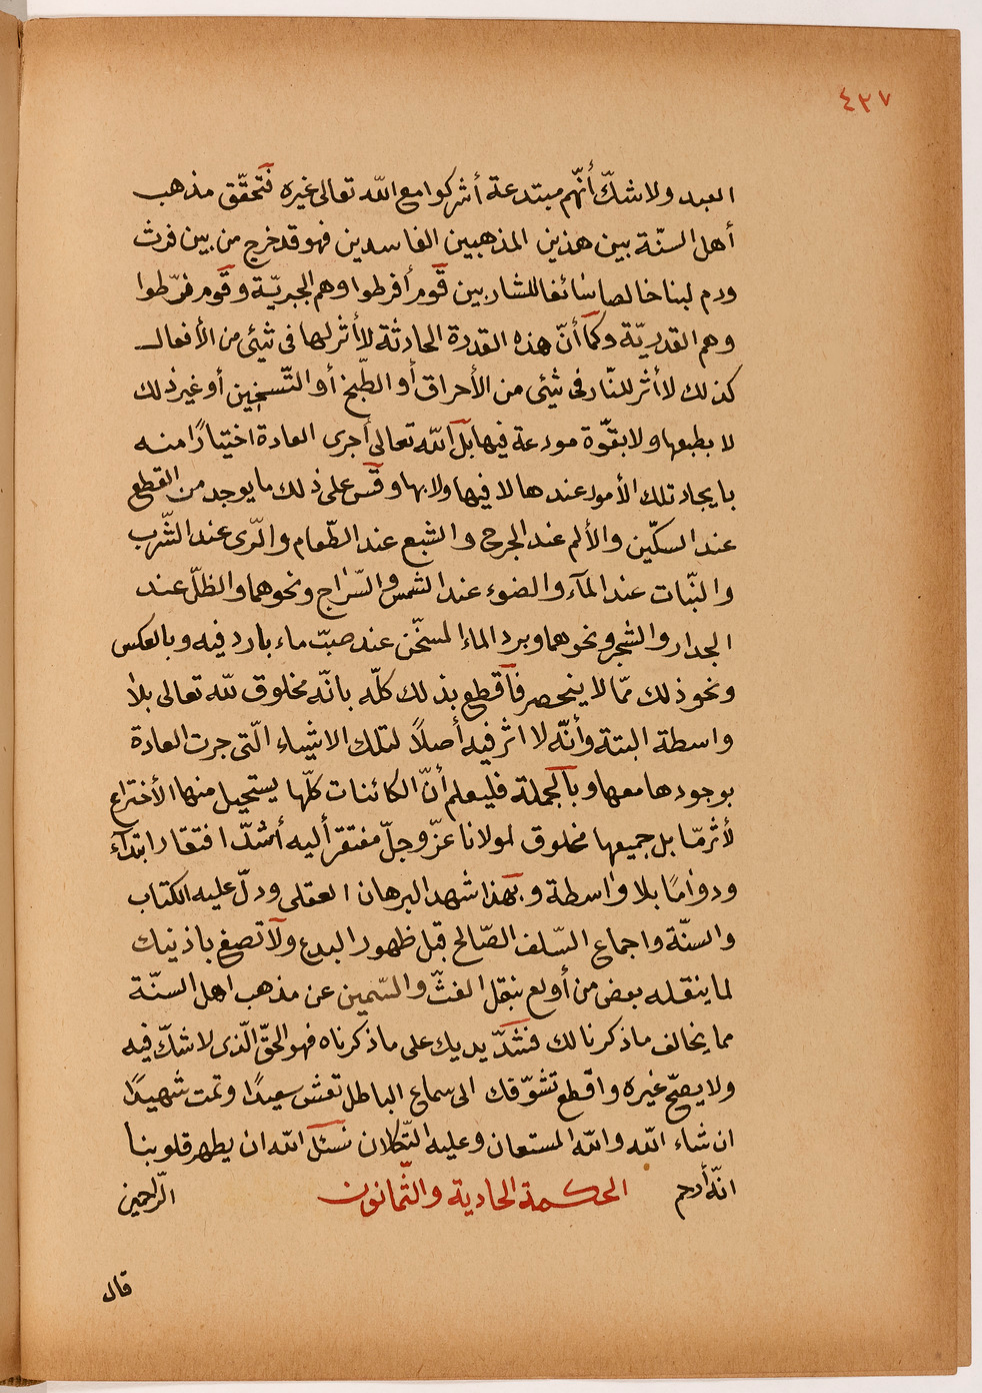 ٤٣٧
العبد ولا شكّ أنّهم مبتدعة أشركوا مع اللّه تعالى غيره فتحقّق مذهب
أهل السنّة بين هذين المذهبين الفاسدين فهو قد خرج من بين فرث
ودم لبنا خالصا سائغا للشاربين قوم أفرطوا وهم الجبريّة وقوم فرّطوا
وهم القدريّة وكما أنّ هذه القدرة الحادثة لا أثر لها فى شيئى من الأفعال
كذلك لا أثر للنّار فى شيئى من الأحراق أو الطّبخ أو التّسخين أو غير ذلك
لا بطبعها ولا بقوّة مودعة فيها بل اللّه تعالى أجرى العادة اختيارًا منه
بايجاد تلك الأمور عندها لا فيها ولا بها وقس على ذلك ما يوجد من القطع
عند السكّين والألم عند الجرح والشبع عند الطّعام والرّى عند الشّرب
والنّبات عند المآء والضوء عند الشمس والسّراج ونحوهما والظلّ عند
الجدار والشجر ونحوهما وبرد الماء المسخّن عند صبّ ماء بارد فيه وبالعكس
ونحو ذلك ممّا لا ينحصر فاقطع بذلك كلّه بانّه مخلوق للّه تعالى بلا
واسطة البتة وأنّه لا اثر فيه أصلاً لتلك الاشياء الّتى جرت العادة
بوجودها معها وبالجملة فليعلم أنّ الكائنات كلّها يستحيل منها الأختراع
لأثر مّا بل جميعها مخلوق لمولانا عزّ وجلّ مفتقر أليه أشدّ افتقار ابتدآء
ودوامًا بلا واسطة وبهذا شهد البرهان العقلى ودلّ عليه الكتاب
والسنّة واجماع السّلف الصّالح قبل ظهور البدع ولا تصغ باذنيك
لما ينقله بعض من أولع بنقل الغثّ والسّمين عن مذهب اهل السنّة
مما يخالف ما ذكرنا لك فشدّ يديك على ما ذكرناه فهو الحقّ الّذى لا شكّ فيه
ولا يصحّ غيره واقطع تشوّقك الى سماع الباطل تعش سعيدًا وتمت شهيدًا
ان شاء اللّه واللّه المستعان وعليه التّكلان نسئل اللّه ان يطهر قلوبنا
انّه أرحم الحكمة الحادية والثّمانون الرّاحمين
قال